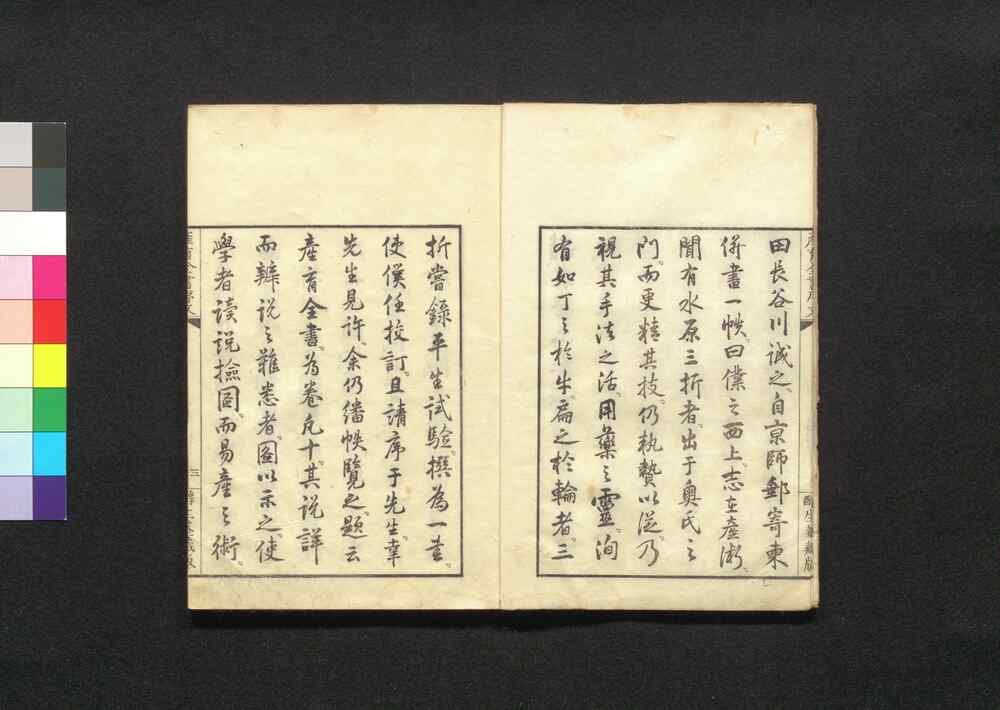 田長谷川誠之。自京師郵寄東
併書一帙。曰僕之西上。志在産術。
聞有水原三折者。出于奥氏之
門。而更精其技。仍執贄以従。乃
視其手法之活。用薬之霊。洵
有如丁之於牛。扁之於輪者。三
折嘗錄平生試驗。撰為一書。
使僕任挍訂。且請序于先生。幸
先生見許。余仍繙帙覽之。題云
產育全書。為卷凡十。其説詳
而辨説之難悉者。圖以示之。使
學者读説撿圖。而易産之術。
三